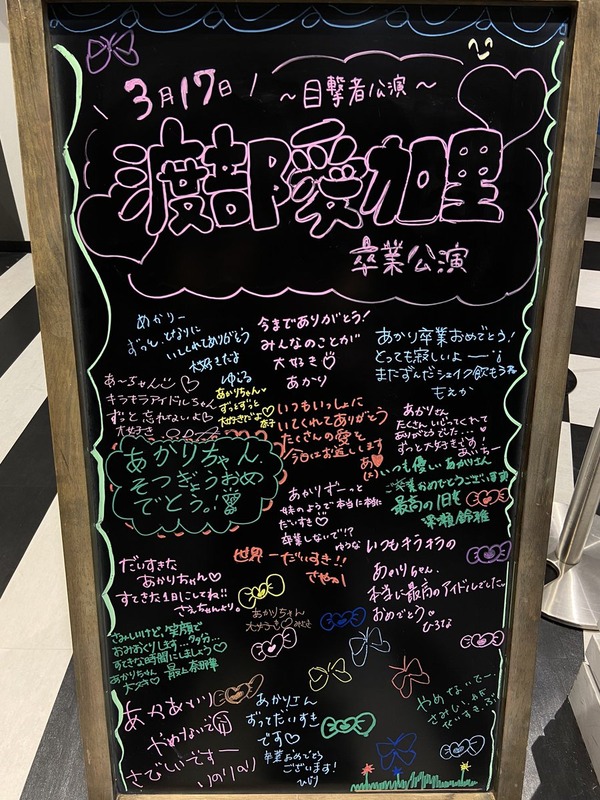 3月17日
～目撃者公演～
渡部愛加里
卒業公演
あかりー
ずっと となりに
いてくれてありがとう
大好きだよ
今までありがとう!
みんなのことが
大好き
あかり
あかり卒業おめでとう!
とっても寂しいよー
またずんだシェイク飲もうね
もえか
あーちゃん
キラキラアイドルちゃん
ずっと忘れないよ♡
大好き
あかりちゃん
ずっとずっと
大好きだよ♡
いつもいっしょに
いてくれてありがとう
たくさんの愛を
今日にお返しします
あかりさん
たくさんいじってくれて
ありがとうでした
ずっと大好きです!
あいちー
あかりちゃん
そつぎょうおめ
でとう。
いつも優しいあかりさん
ご卒業おめでとうございます
最高の1日を
あかりずーっと
妹のようで本当に本当に
だいすき♡
卒業しないで!?
ゆうな
世界一だいすき!!
だいすきな
あかりちゃん♡
すてきな1日にしてね!!
さえちゃんより。
いつもキラキラの
あかりちゃん、
本当に最高のアイドルでした
おめでとう
ひろな
あかりちゃん
大好き♡
さみしいけど、笑顔で
おみおくりします…多分…
すてきな時間にしましょう♡
あかりちゃん
大好き♡
あかあかり
やめないで
さびしいですー
りのりの
あかりさん
ずってたいすき
です♡
卒業おめでとう
ございます!
ひなり
やめないでー
さみしい